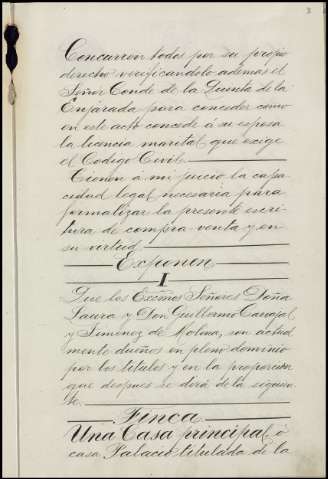 3
Concurren todos por su propio
derecho verificandolo ademas el
Señor Conde de la Quinta de la
Enjarada para conceder como
en este acto concede á su esposa
la licencia marital que exige
el Codigo Civil.
Tienen á mi juicio la capa-
cidad legal necesaria para
formalizar la presente escri-
tura de compra-venta y en
su virtud
Exponen
I
Que los Excmos Señores Doña
Laura y Don Guillermo Carvajal
y Ximenez de Molina, son actual
mente dueños en pleno dominio
por los titulos y en la proporcion
que despues se dirá de la siguien
te.
Finca
Una Casa principal, ó
casa Palacio titulada de la